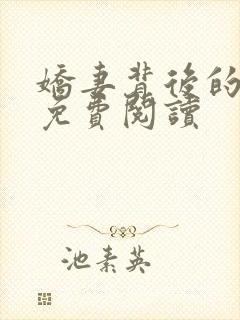 嬌妻背後的
免費閱讀
池素英